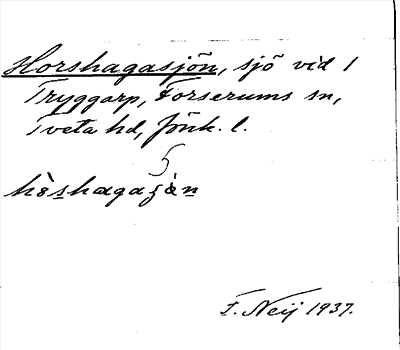 Horshagasjön, sjö vid 1
Tryggarp, Forserums sn,
Tveta hd, Jönk. l.
5
F. Neij 1937.